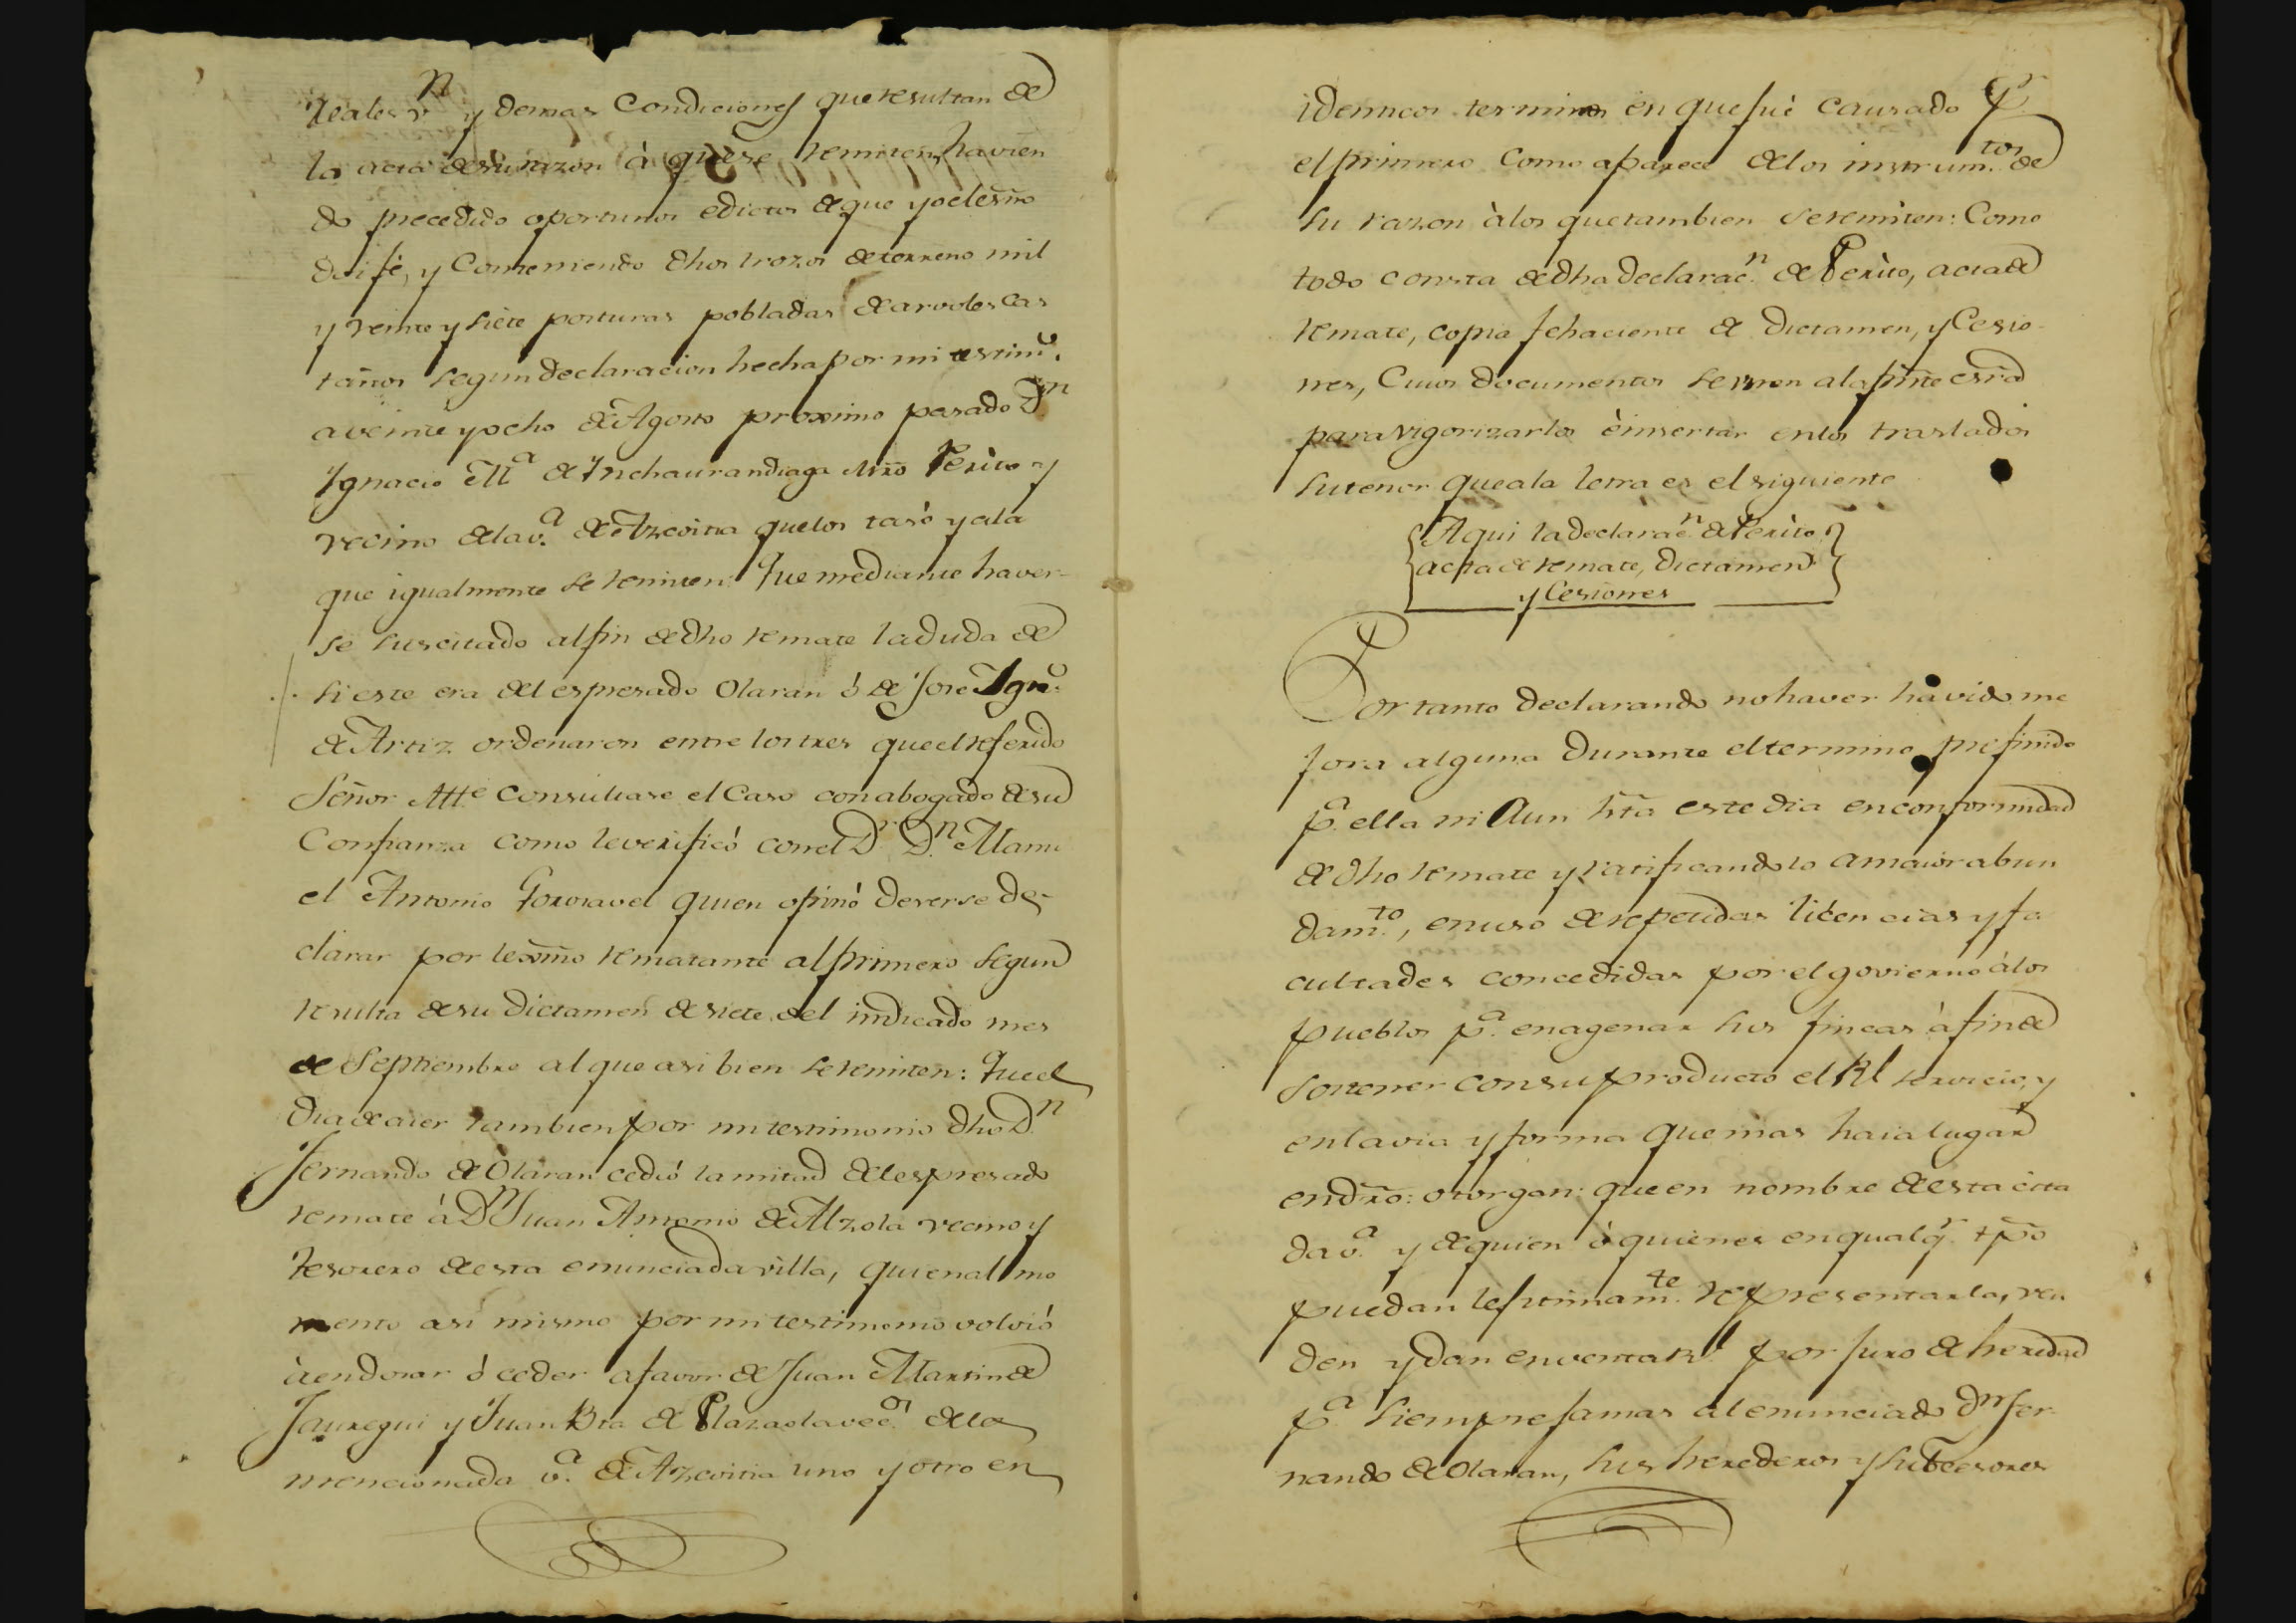 reales v.n y demas Condiciones que resultan de
la acta de su razon à que se remiten, havien
do precedido oportunos edictos de que yo el esño
doi fé, y Conteniendo dhos trozos de terreno mil
y veinte y siete posturas pobladas de arvoles cas
taños segun declaracion hecha por mi testim.o
a veinte y ocho de Agosto proximo pasado D.n
Ygnacio M.a de Ynchaurandiaga Mro Perito y
vecino de la v.a de Azcoitia que los tasó y a la
que igualmente se remiten: Que mediante haver-
se suscitado al fin de dho remate la duda de
si este era del espresado Olaran ó de Jose Ygn.o
de Artiz ordenaron entre los tres que el referido
Señor Alte consultase el Caso con abogado de su
Confianza como le verificó con el D.r D.n Manu
el Antonio Gorozavel quien opinó deverse de-
clarar por lexmo rematante al primero segun
resulta de su Dictamen de siete del indicado mes
de Septiembre al que asi bien se remiten: Que el
dia de aier tambien por mi testimonio dho D.n
Fernando de Olaran cedió la mitad del espresado
remate á D.n Juan Antonio de Alzola vecino y
Tesorero de esta enunciada villa, quien al mo
mento asi mismo por mi testimonio volvió
à endosar ó ceder a favor de Juan Martin de
Jauregui y Juan Bta de Plazaola vec.os de la
mencionada v.a de Azcoitia uno y otro en
identicos terminos en que fué causado
el primero Como aparece de los instrum.tos de
su razon à los que tambien se remiten: Como
todo consta de dha declarac.n de Perito, acta de
remate, copia fehaciente de Dictamen, y Cesio-
nes, Cuios documentos se unen a la pnte esrra
para vigorizarlos è insertar en los traslados
su tenor que a la letra es el siguiente
Aqui la declarac.n de Perito,
acta de remate, Dictamen
y Cesiones
Por tanto declarando no haver havido me
jora alguna durante el termino prefinido
p.a ella ni Aun hta este dia en conformidad
de dho remate y ratificandolo a maior abun
dam.to, en uso de repetidas licencias y fa
cultades concedidas por el govierno à los
pueblos p.a enagenar sus fincas à fin de
sostener con su producto el Rl servicio, y
en la via y forma que mas haia lugar
en dro: otorgan: que en nombre de esta cita
da v.a y de quien ò quienes en qualq.r tpo
puedan lejitimam.te representarla, ven
den y dan en venta Rl por juro de heredad
p.a siempre jamas al enunciado d.n Fer-
nando de Olaran, sus herederos y subcesores